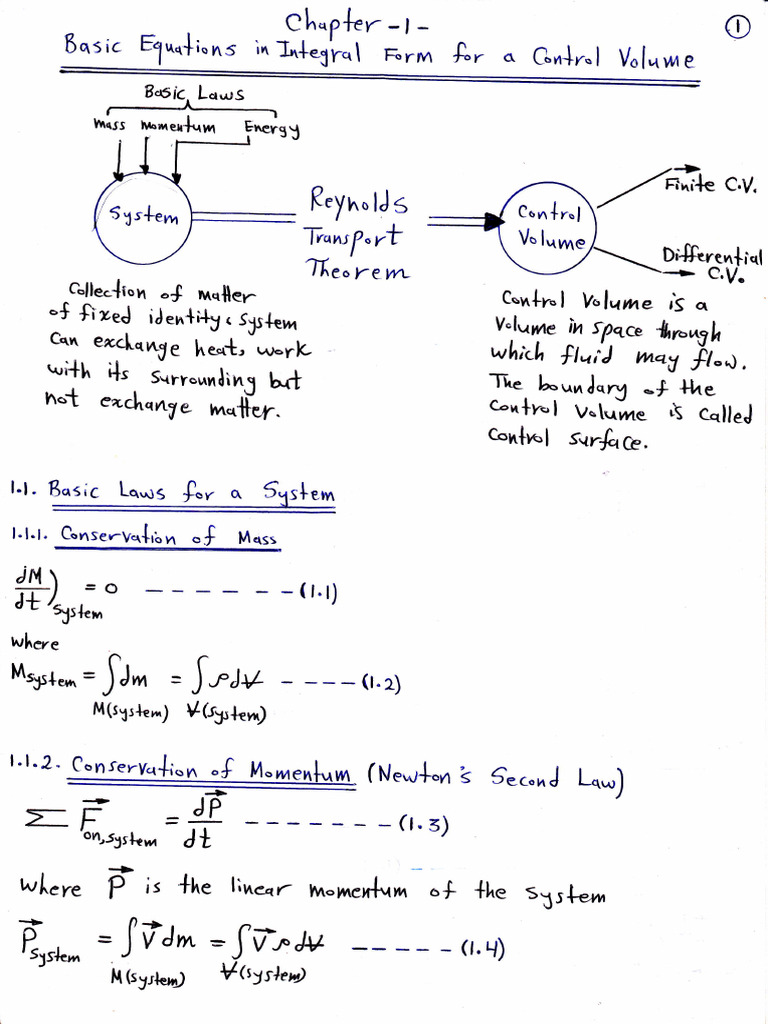 Chapter -1-
①
Basic Equations in Integral Form for a Control Volume
Basic Laws
mass momentum Energy
System
Reynolds
Transport
Theorem
Control
Volume
Finite C.V.
Differential
C.V.
Collection of matter
of fixed identity, system
can exchange heat, work
with its surrounding but
not exchange matter.
Control Volume is a
Volume in space through
which fluid may flow.
The boundary of the
control volume is called
control surface.
1.1. Basic Laws for a System
1.1.1. Conservation of Mass
dM/dt)system = 0 ------- (1.1)
where
Msystem = ∫dm = ∫ρdV ----- (1.2)
M(system) V(system)
1.1.2. Conservation of Momentum (Newton's Second Law)
∑ F⃗on,system = dP⃗/dt ------- (1.3)
where P⃗ is the linear momentum of the system
P⃗system = ∫V⃗dm = ∫V⃗ρdV ----- (1.4)
M(system) V(system)